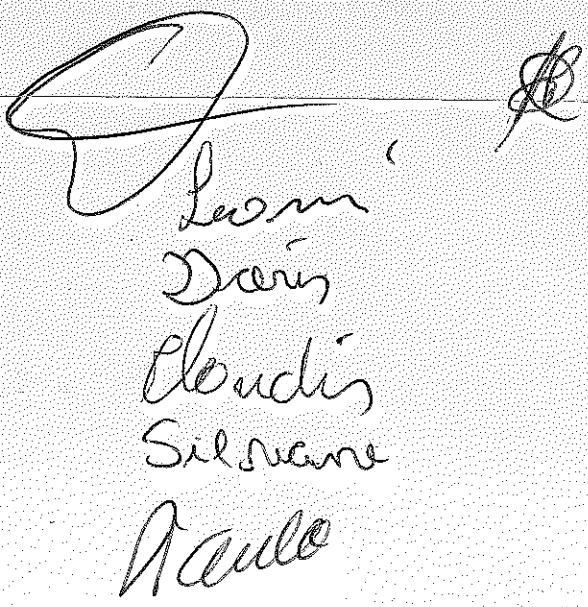 Leoni
Doris
Claudia
Silvane
Paulo